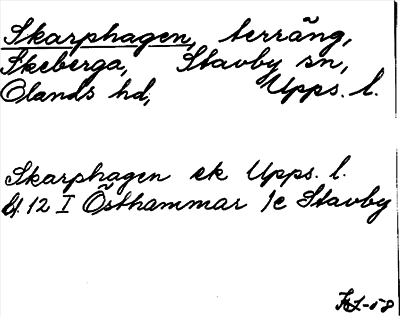 Skarphagen, terräng,
Skeberga, Stavby sn,
Olands hd, Upps. l.
Skarphagen ek Upps. l.
bl. 12 I Östhammar 1c Stavby